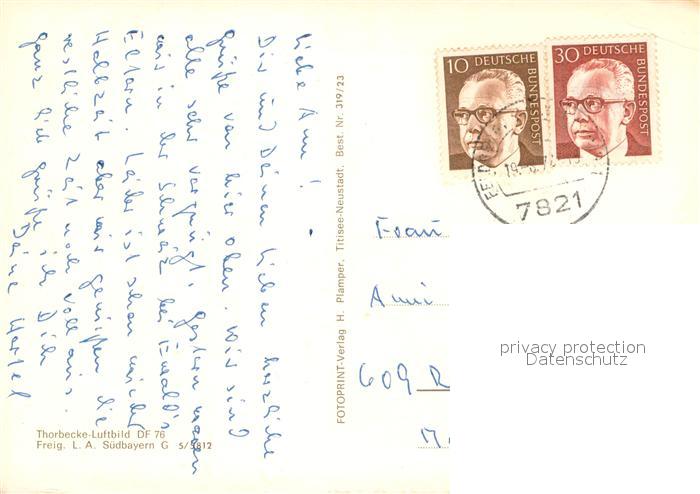 Liebe Anni!
Dir und Deinen Lieben herzliche
Grüße von hier oben. Wir sind
alle sehr vergnügt. Gestern waren
wir in der Schweiz bei Ewald's
Eltern. Leider ist schon wieder
Halbzeit aber wir genießen die
restliche Zeit noch voll aus.
Ganz lieb grüße ich Dich
Deine
Thorbecke-Luftbild DF 76
Freig. L. A. Südbayern G 5/3812
FOTOPRINT-Verlag H. Plamper, Titisee-Neustadt. Best. Nr. 319/23
10 DEUTSCHE BUNDESPOST
30 DEUTSCHE BUNDESPOST
7821
Frau
Anni
609 R
privacy protection
Datenschutz